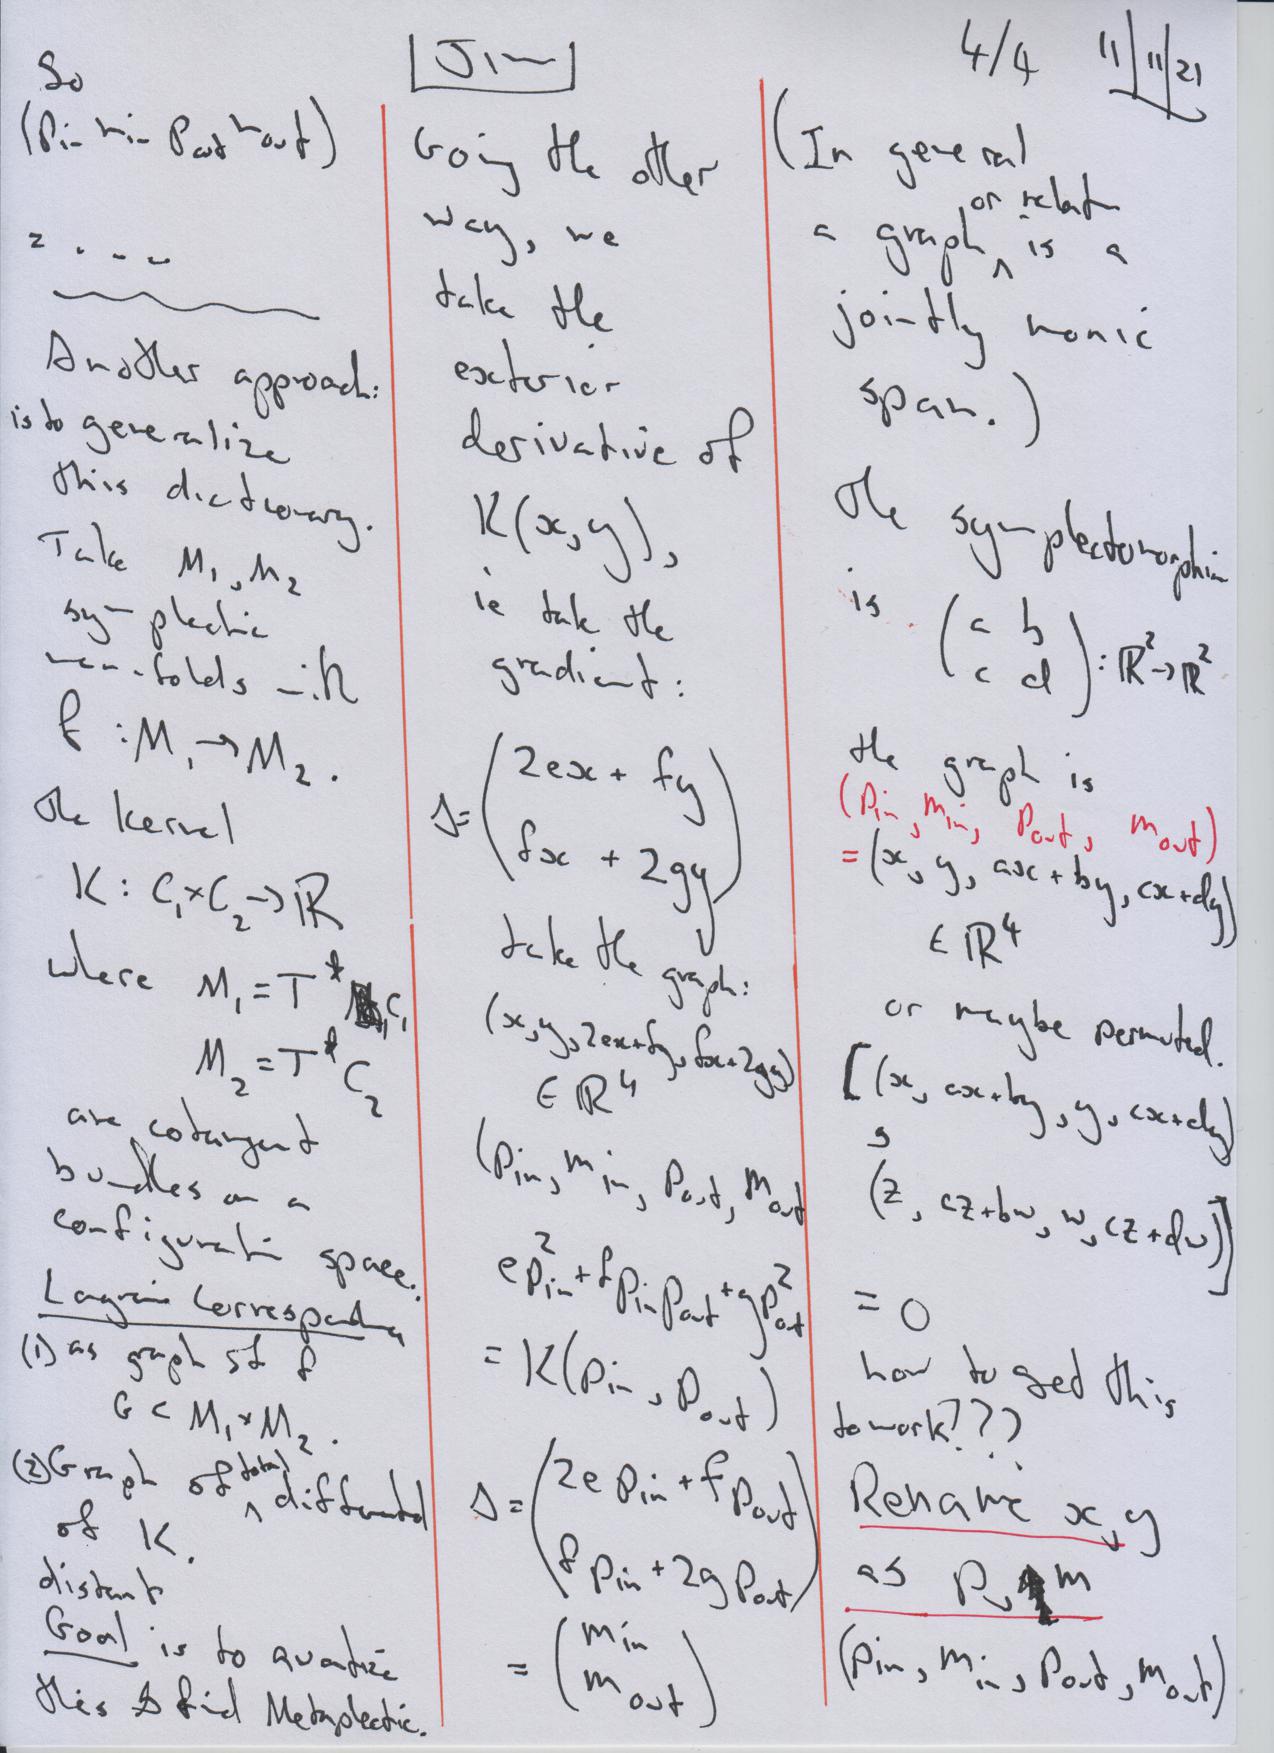 Jim
4/4 11/11/21
So
(Pin min Pout mout)
= . . . .
Another approach:
is to generalize
this dictionary.
Take M₁, M₂
symplectic
manifolds with
f : M₁ → M₂.
the kernel
K : C₁ × C₂ → ℝ
where M₁ = T* C₁
M₂ = T* C₂
are cotangent
bundles on a
configuration space.
(1) as graph of f
G ⊂ M₁ × M₂.
(2) Graph of total ^ differential
of K.
distant
Goal is to quantize
this & find Metaplectic.
Going the other
way, we
take the
exterior
derivative of
K(x, y),
ie take the
gradient:
Δ = (2ex + fy
fx + 2gy)
take the graph:
(x, y, 2ex+fy, fx+2gy)
∈ ℝ⁴
(Pin, min, Pout, mout
e pin² + f pin pout + g pout²
= K(Pin, Pout)
Δ = (2e Pin + f Pout
f Pin + 2g Pout)
= (min
mout)
(In general
or relation
a graph ^ is a
jointly monic
span.)
the symplectomorphism
is (a b
c d) : ℝ² → ℝ²
the graph is
(Pin, min, Pout, mout)
= (x, y, ax + by, cx+dy)
∈ ℝ⁴
or maybe permuted.
[(x, ax+by, y, cx+dy)
,
(z, cz+bw, w, cz+dw)]
= 0
how to get this
to work???
Rename x, y
as p, m
(Pin, min, Pout, mout)